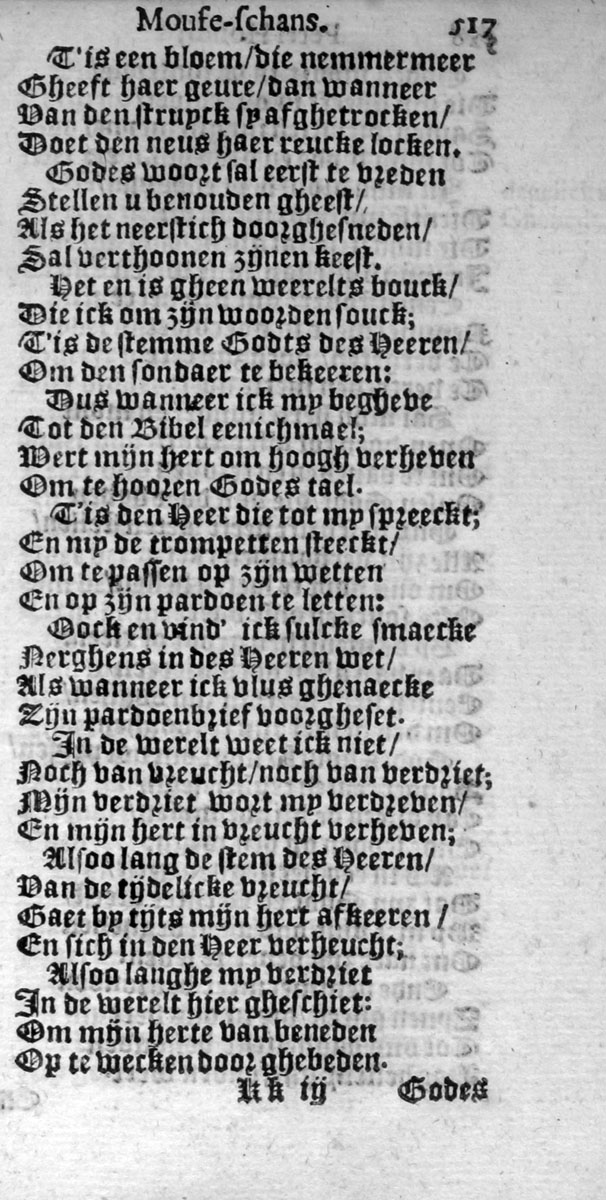 Mouse-schans. 517
T'is een bloem/die nemmermeer
Gheeft haer geure/dan wanneer
Van den struyck sy afghetrocken/
Doet den neus haer reucke locken.
Godes woort sal eerst te vreden
Stellen u benouden gheest/
Als het neerstich doorghesneden/
Sal verthoonen zijnen keest.
Het en is gheen weerelts bouck/
Die ick om zijn woorden souck;
T'is de stemme Godts des Heeren/
Om den sondaer te bekeeren:
Dus wanneer ick my begheve
Tot den Bibel eenichmael;
Wert mijn hert om hoogh verheven
Om te hooren Godes tael.
T'is den Heer die tot my spreeckt;
En my de trompetten steeckt/
Om te passen op zijn wetten
En op zijn pardoen te letten:
Oock en vind' ick sulcke smaecke
Nerghens in des Heeren wet/
Als wanneer ick vlus ghenaecke
Zijn pardoenbrief voorgheset.
In de werelt weet ick niet/
Noch van vreucht/noch van verdriet;
Mijn verdriet wort my verdreven/
En mijn hert in vreucht verheven;
Alsoo lang de stem des Heeren/
Van de tijdelicke vreucht/
Gaet by tijts mijn hert afkeeren/
En sich in den Heer verheucht;
Alsoo langhe my verdriet
In de werelt hier gheschiet:
Om mijn herte van beneden
Op te wecken door ghebeden.
Kk ij Godes